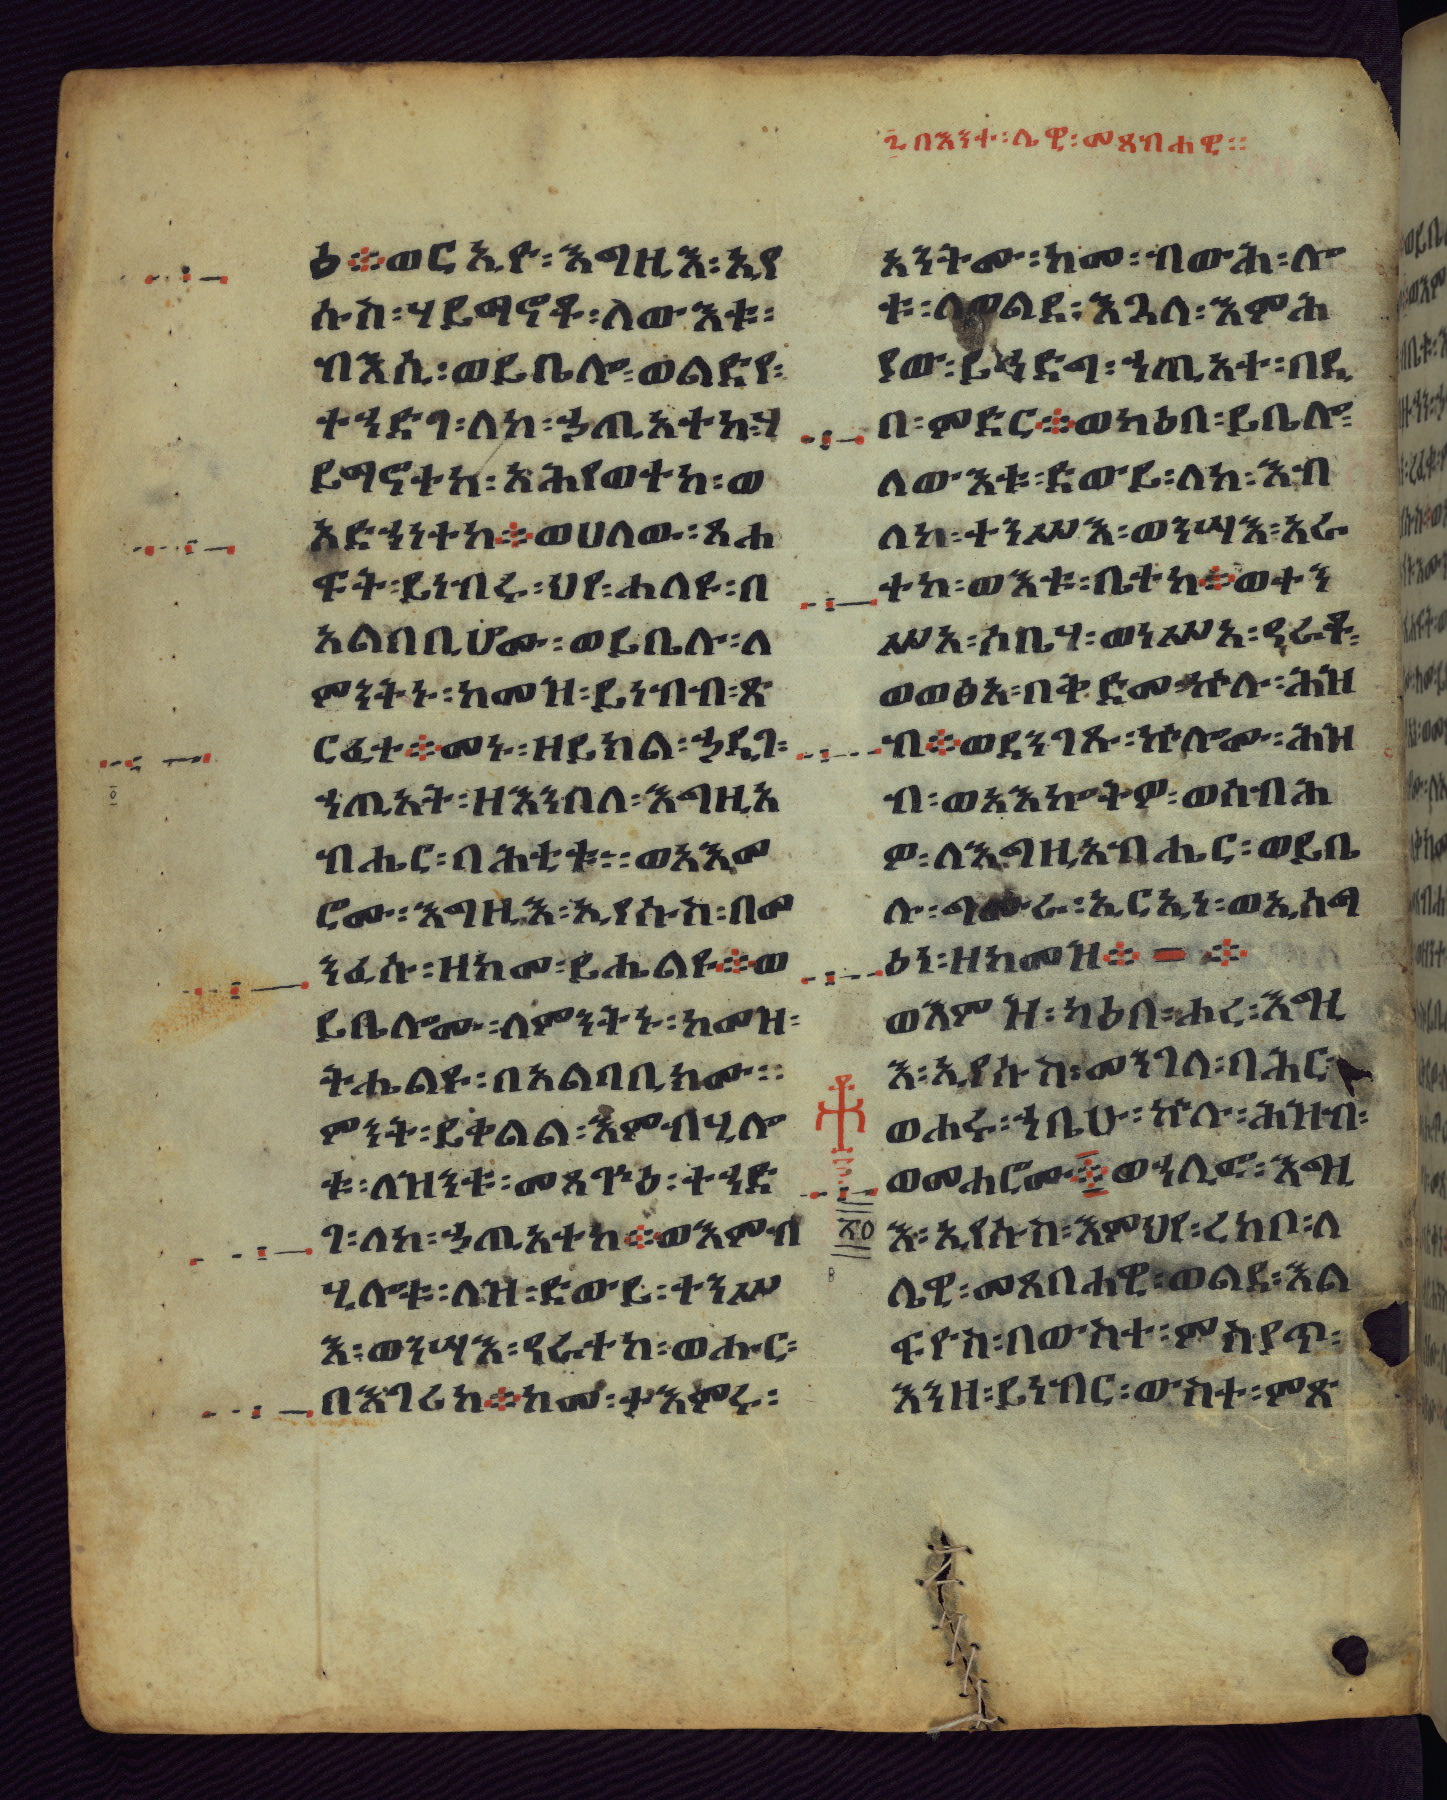 ፪ በእንተ፡ሌዊ፡መጸብሐዊ፡፡
ዕ፨ወርኢዮ፡እግዚእ፡ኢየ
ሱስ፡ሃይማኖቶ፡ለውእቱ፡
ብእሲ፡ወይቤሎ፡ወልድየ፡
ተኀድገ፡ለከ፡ኃጢአተከ፡ሃ
ይማኖተከ፡አሕየወተከ፡ወ
አድኀነተከ፨ወሀለው፡ጸሐ
ፍት፡ይነብሩ፡ህየ፡ሐለዩ፡በ
አልበቢሆሙ፡ወይቤሉ፡ለ
ምንትኑ፡ከመዝ፡ይነብብ፡ጽ
ርፈተ፨መኑ፡ዘይክል፡ኃዲገ፡
ኀጢአት፡ዘእንበለ፡እግዚአ
ብሔር፡ባሕቲቱ፡፡ወአእመ
ሮሙ፡እግዚእ፡ኢየሱስ፡በመ
ንፈሱ፡ዘከመ፡ይሔልዩ፨ወ
ይቤሎሙ፡ለምንትኑ፡ከመዝ፡
ትሔልዩ፡በአልባቢክሙ፡፡
ምንት፡ይቀልል፡እምብሂሎ
ቱ፡ለዝንቱ፡መጻጕዕ፡ተኀድ
ገ፡ለከ፡ኃጢአተከ፨ወእምብ
ሂሎቱ፡ለዝ፡ድውይ፡ተንሥ
እ፡ወንሣእ፡ዓራተከ፡ወሑር፡
በእገሪከ፨ከመ፡ታእምሩ፡
አንትሙ፡ከመ፡ብውሕ፡ሎ
ቱ፡ለወልደ፡እጓለ፡እምሕ
ያው፡ይኅድግ፡ኀጢአተ፡በዲ
በ፡ምድር፨ወካዕበ፡ይቤሎ፡
ለውእቱ፡ድውይ፡ለከ፡እብ
ለከ፡ተንሥእ፡ወንሣእ፡አራ
ተከ፡ወእቱ፡ቤተከ፨ወተን
ሥአ፡ሶቤሃ፡ወነሥአ፡ዓራቶ፡
ወወፅአ፡በቅድመ፡ኵሉ፡ሕዝ
ብ፨ወደንገጹ፡ኵሎሙ፡ሕዝ
ብ፡ወአእኰትዎ፡ወሰብሕ
ዎ፡ለእግዚአብሔር፡ወይቤ
ሉ፡ግሙራ፡ኢርኢነ፡ወኢሰማ
ዕነ፡ዘከመዝ፨ ፨
ወእምዝ፡ካዕበ፡ሐረ፡እግዚ
እ፡ኢየሱስ፡መንገለ፡ባሕር
ወሐሩ፡ኀቤሁ፡ኵሉ፡ሕዝብ፡
ወመሐሮሙ፨ወኀሊፎ፡እግዚ
እ፡ኢየሱስ፡እምህየ፡ረከቦ፡ለ
ሌዊ፡መጸብሐዊ፡ወልደ፡እል
ፍዮስ፡በውስተ፡ምስያጥ፡
እንዘ፡ይነብር፡ውስተ፡ምጽ